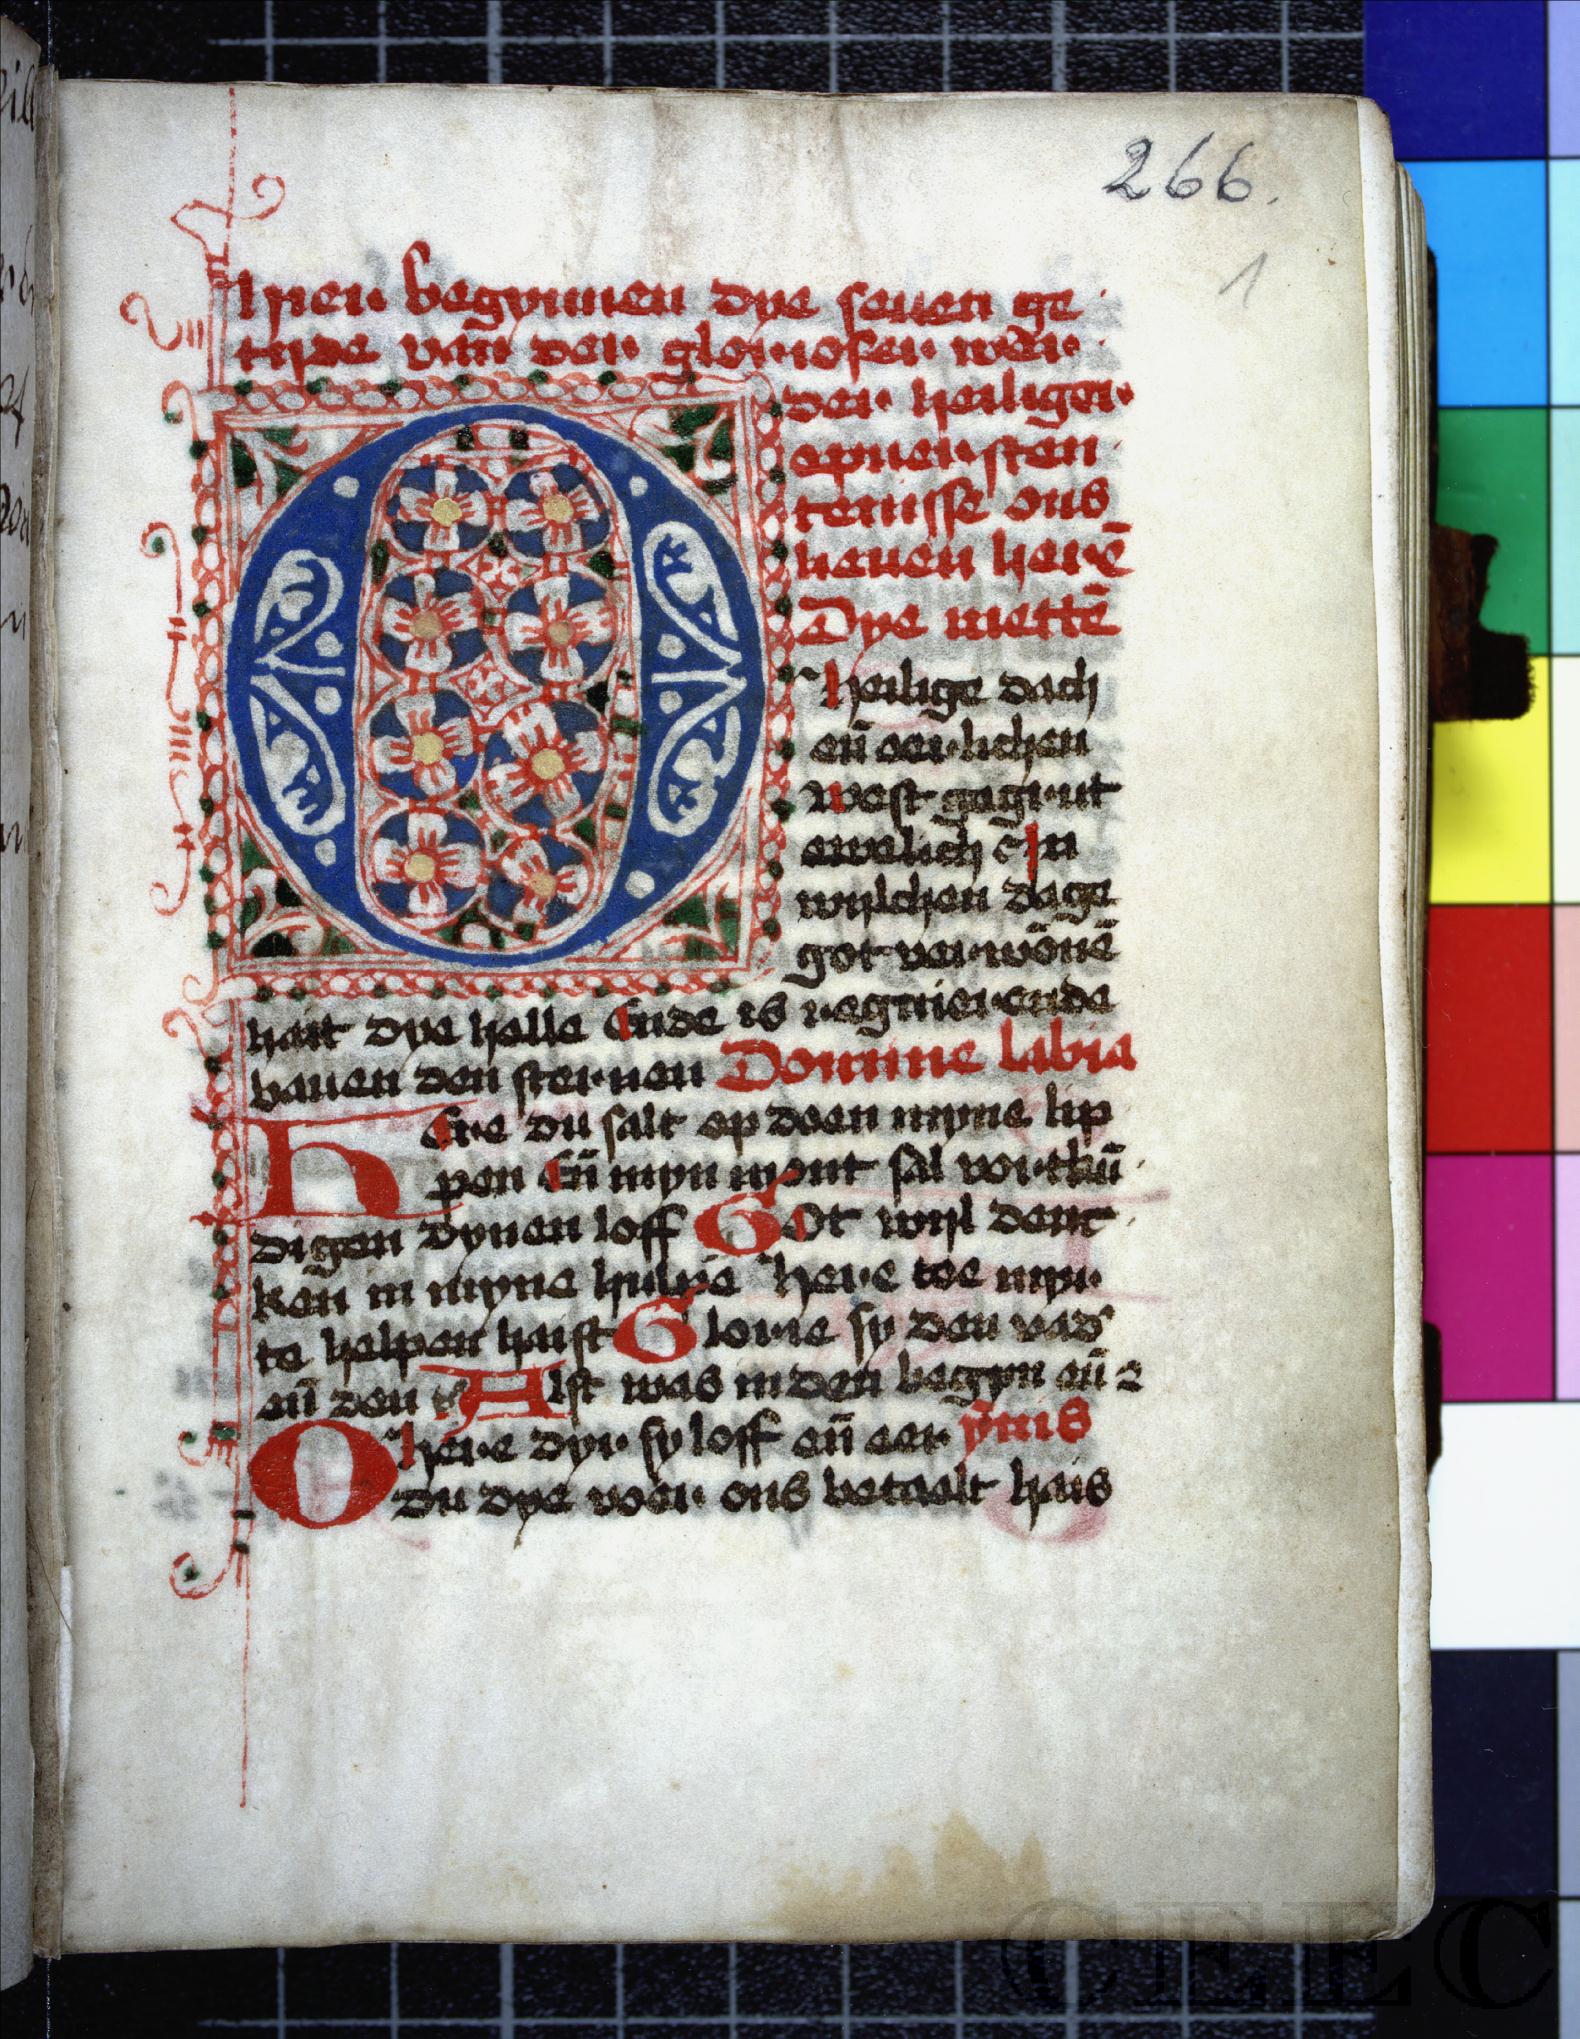 266.
1
Hyer begynnen dye seuen ge
tijde van der glorioser wer
der heiliger
epuersten
tenisse ons
lieuen herē
Dye mettē
O heilige dach
eñ eerlichen
west gegrut
ewelich In
wylchen dage
got verwōnē
hait dye helle Ende is regnierende
bauen den sternen Domine labia
HEre du salt op doen myne lip
pen Eñ myn mont sal vortkū
digen dynen loff GOt wyl denc
ken in myne hulpe here toe myr
te helpen haist Glorie sy den vad'
eñ den Alst was in den begyn eñ 2
O here dyr sy loff eñ eer ymis
du dye voer ons betaelt hais
CEEC